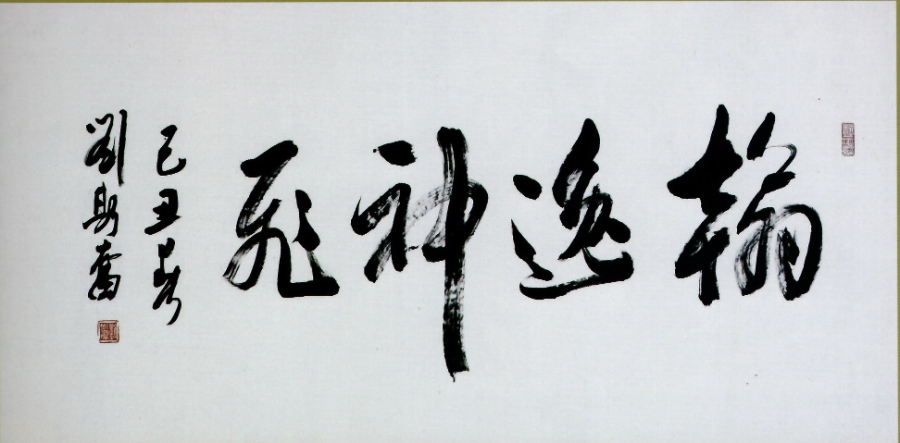 翰逸神飛
己丑春
劉斯奮